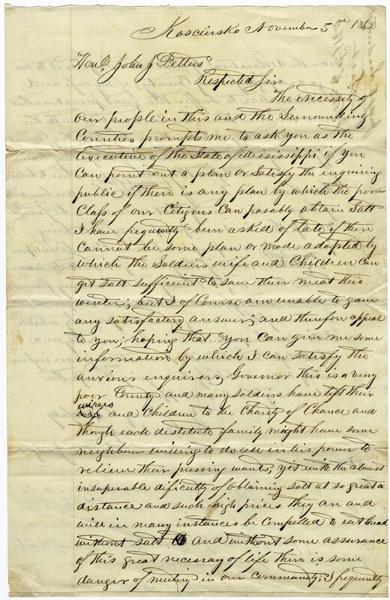 Kosciusko November 5th 1862
Hon. John J Pettus
Respected Sir
The necessity of
our people in this and the Surrounding
Counties prompts me to ask you as the
Executive of the State of Mississippi if you
Can point out a plan or Satisfy the enquiring
public if there is any plan by which the poorer
Class of our Citizens Can posably obtain Salt
I have frequently been asked of late if there
Cannot be some plan or mode adopted by
which the Soldiers wife and Children Can
get Salt sufficient to save their meat this
winter; but I of Course am unable to gain
any satisfactory answer; and therefore appeal
to you; hoping that you Can give me some
information by which I Can Satisfy the
anxious enquirers, Governor this is a very
poor County and many Soldiers have left their
wives
and Children to the Charity of Chance and
though each distitute family might have some
neighbour willing to do all in his power to
relieve their pressing wants, yet with the almost
insuperable dificulty of obtaining Salt at so great a
distance and such high prices they are and
will in many instances be Compelled to eat bread
without Salt and without some assurance
of this great necessary of life there is some
danger of mutiny in our Community, I frequently